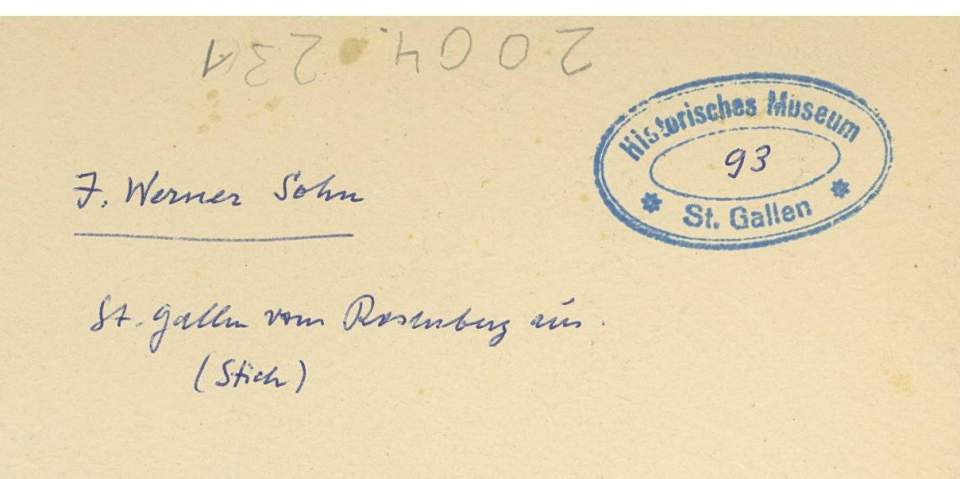 2004.231
Historisches Museum
93
St. Gallen
J. Werner Sohn
St. Gallen vom Rosenberg aus.
(Stich)